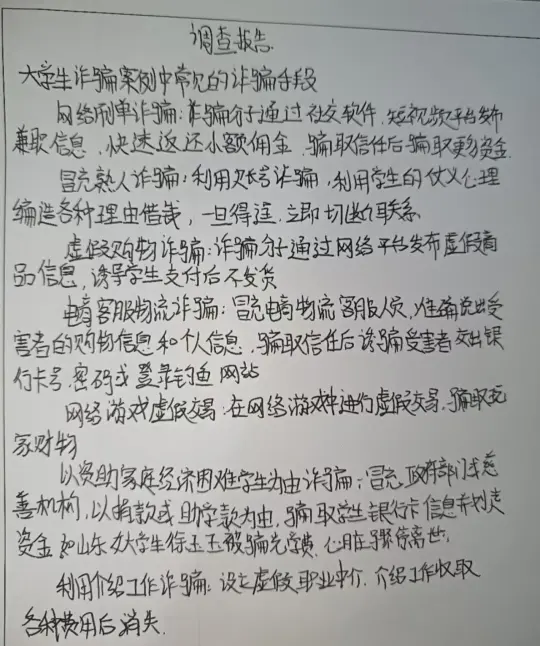 调查报告
大学生诈骗案例中常见的诈骗手段
网络刷单诈骗:诈骗分子通过社交软件、短视频平台发布
兼职信息,快速返还小额佣金,骗取信任后骗取更多资金
冒充熟人诈骗:利用 诈骗,利用学生的仗义心理
编造各种理由借钱,一旦得逞,立即切断联系.
虚假购物诈骗:诈骗分子通过网络平台发布虚假商
品信息,诱导学生支付后不发货
电商客服物流诈骗:冒充电商物流客服人员,准确说出受
害者的购物信息和个人信息,骗取信任后诱骗受害者交出银
行卡号,密码或登录钓鱼网站
网络游戏虚假交易:在网络游戏中进行虚假交易,骗取玩
家财物
以资助家庭经济困难学生为由诈骗:冒充政府部门或慈
善机构,以捐款或助学款为由,骗取学生银行卡信息并划走
资金 如山东女大学生徐玉玉被骗光学费,心脏骤停离世.
利用介绍工作诈骗:设立虚假职业中介,介绍工作收取
各种费用后消失.